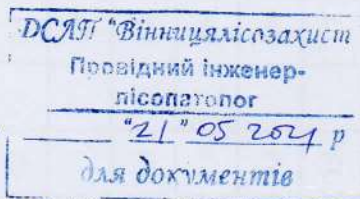 ДСЛП "Вінницялісозахист
Провідний інженер-
лісопатолог
"21" 05 2021 р
для документів